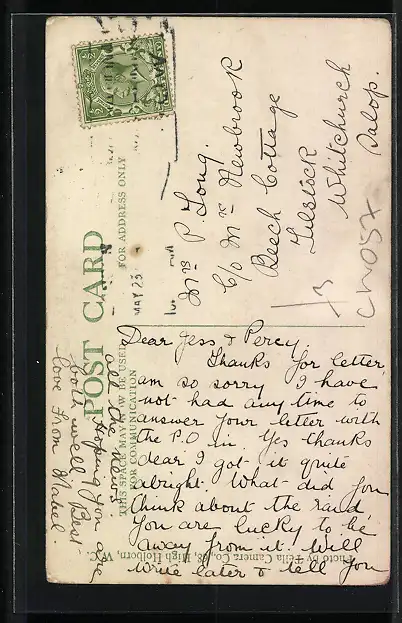 POST CARD
THIS SPACE MAY NOW BE USED
FOR COMMUNICATION
FOR ADDRESS ONLY
MAY 23
Mrs P. Long.
C/o Mrs Newbrook
Beech Cottage
Tilstock
Whitchurch
Salop.
Dear Jess & Percy.
Thanks for letter,
am so sorry I have
not had any time to
answer your letter with
the P.O in. Yes thanks
dear I got it quite
alright. What did you
think about the raid,
you are lucky to be
away from it. Will
write later & tell you
all the news
Hoping you are
both well. Best
love from Mabel
Photo by Tella Camera Co., 68, High Holborn, W.C.